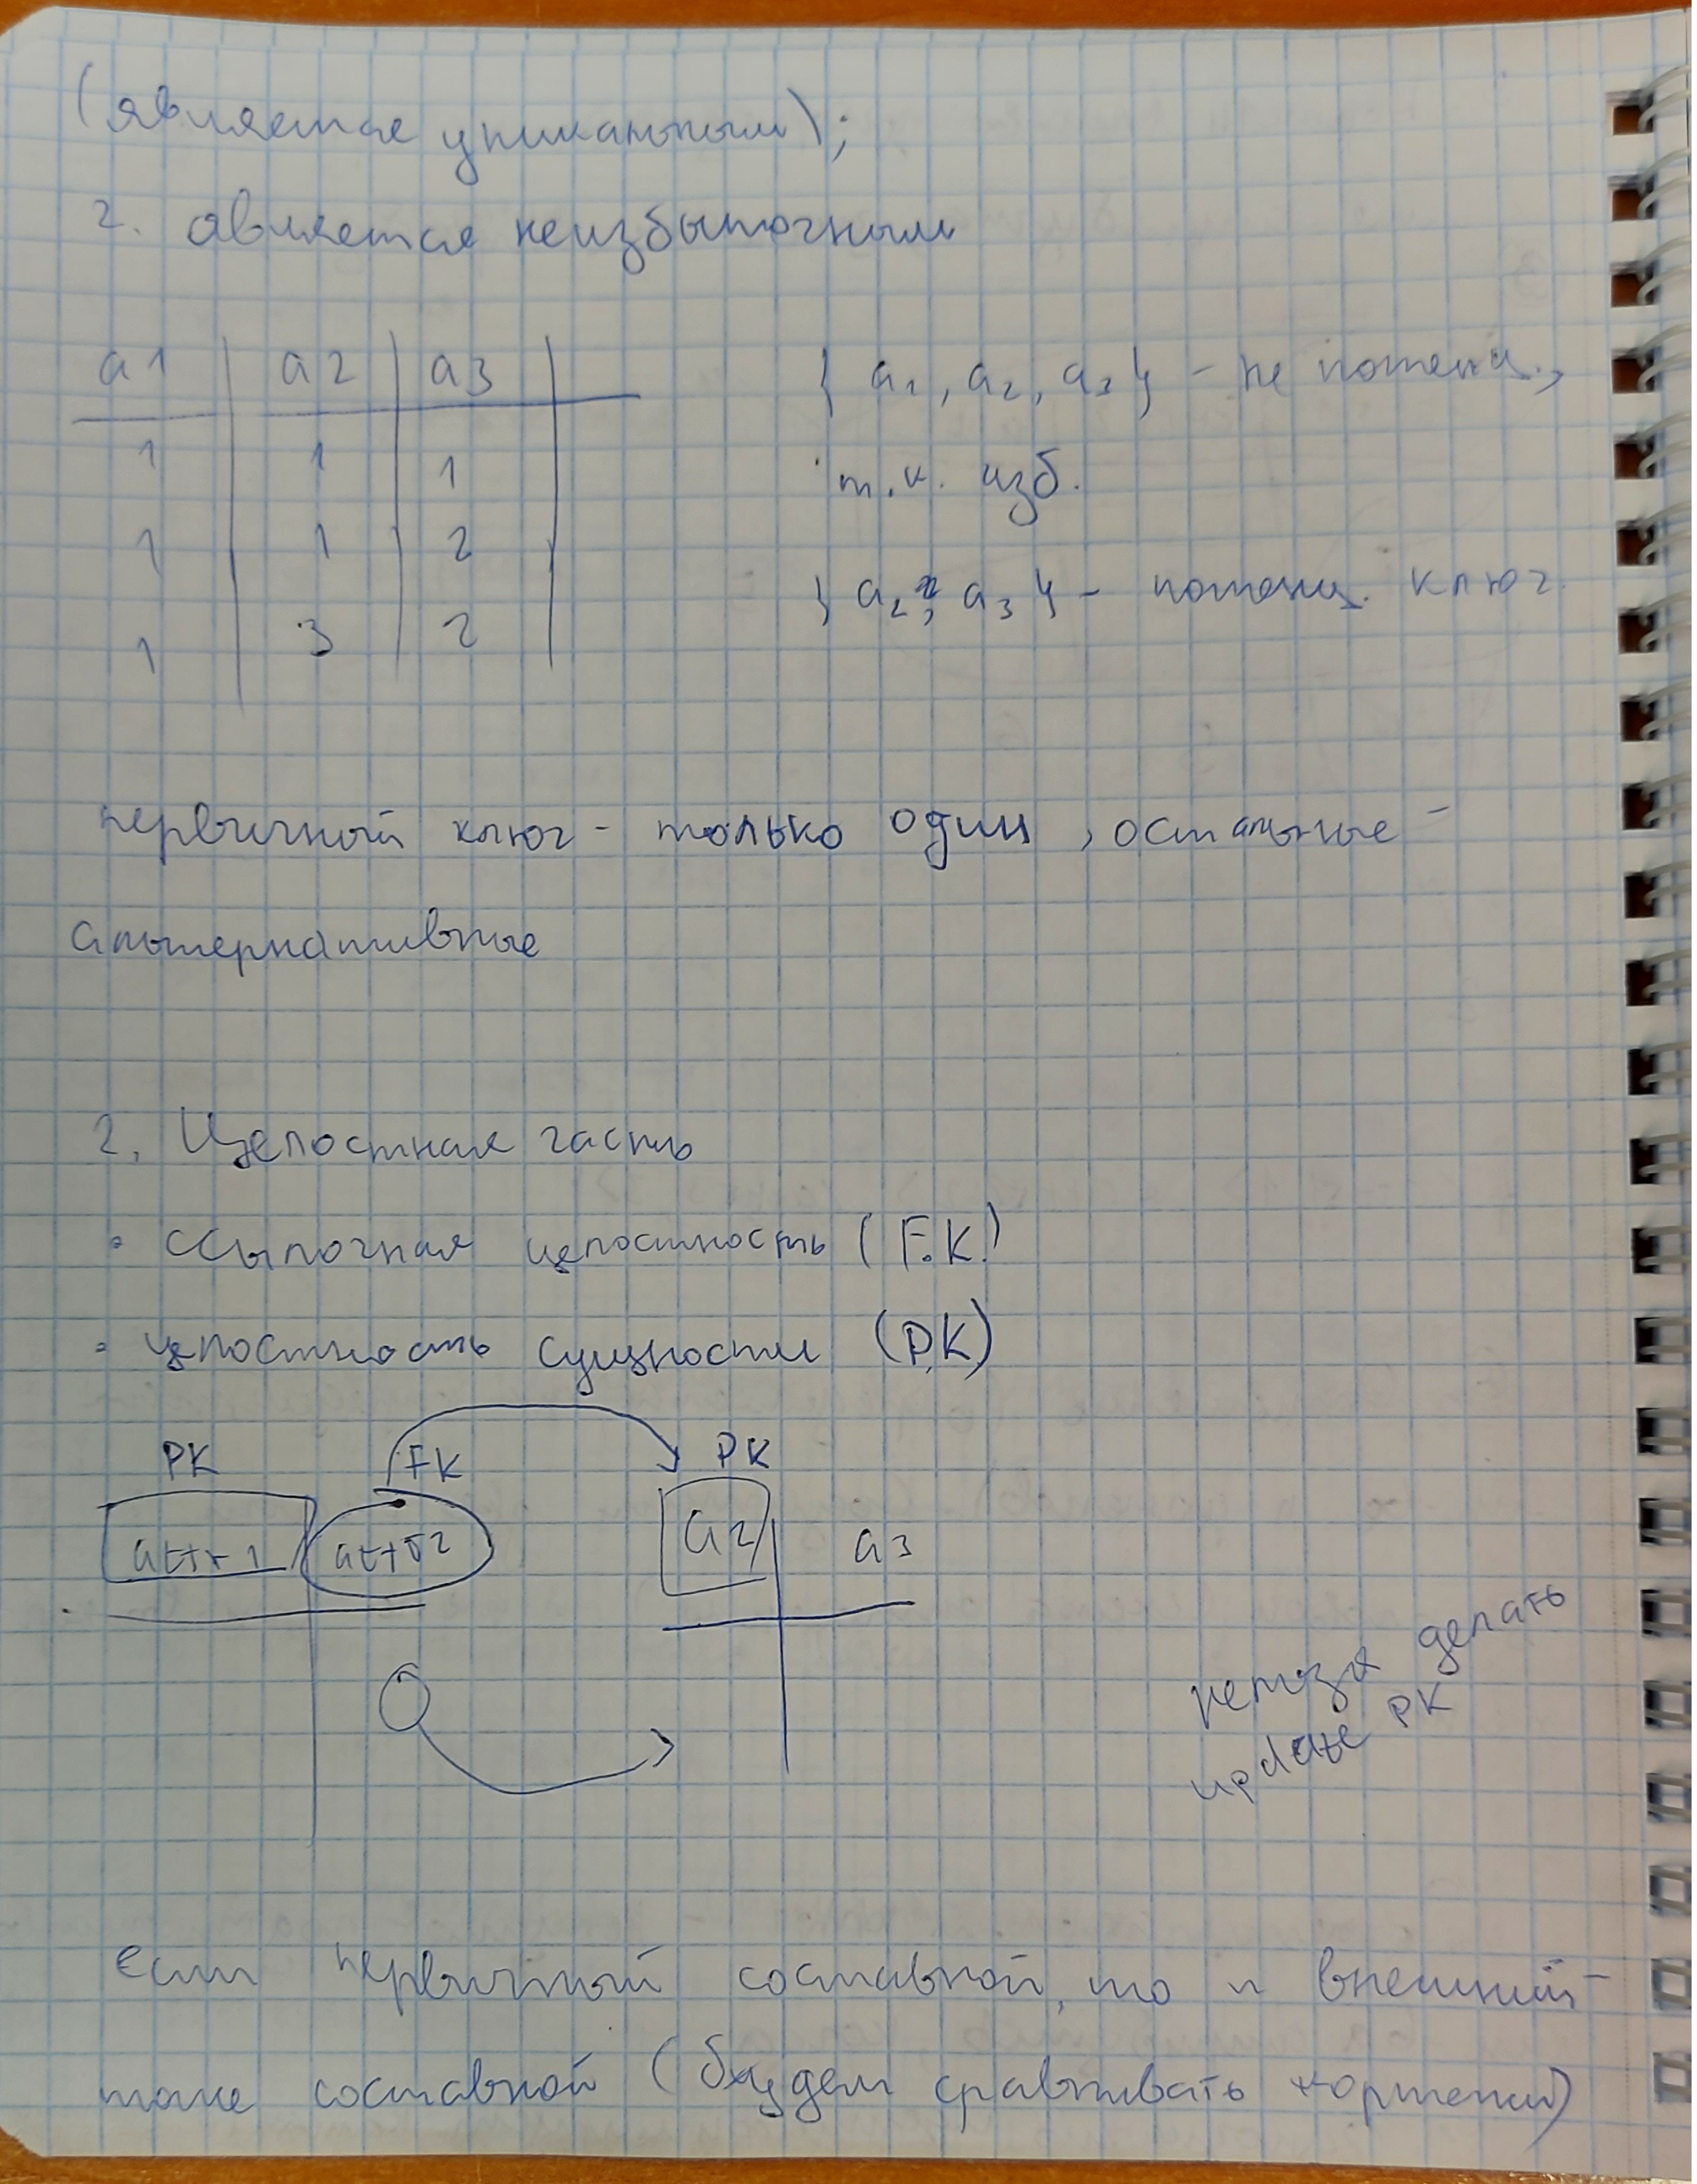 (является уникальным);
2. является неизбыточным
a1 a2 a3
1 1 1
1 1 2
1 3 2
{ a1, a2, a3 } - не потенц.,
т.к. изб.
{ a2, a3 } - потенц. ключ.
первичный ключ - только один, остальные -
альтернативные
2. Целостная часть
• ссылочная целостность (F.K.)
• целостность сущности (P.K)
PK FK PK
attr1 attr2 a2 a3
нельзя делать
update PK
если первичный составной, то и внешний -
тоже составной (будем сравнивать кортежи)